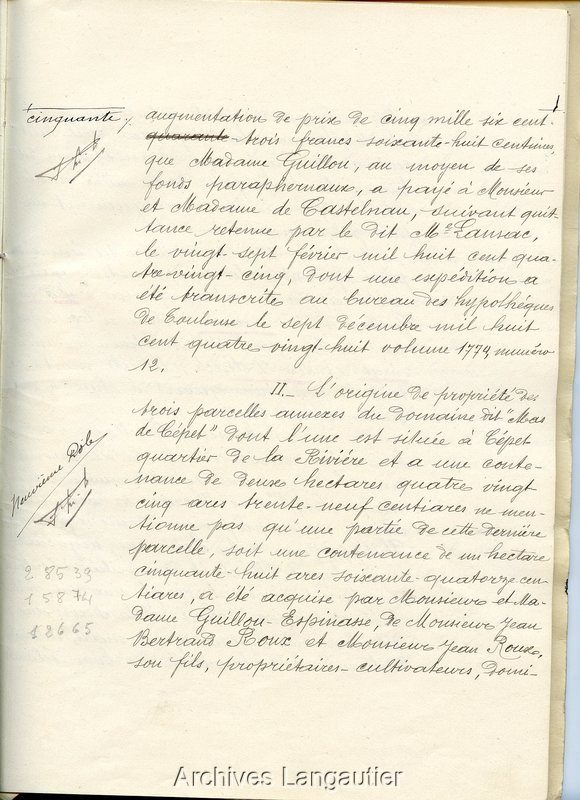 cinquante
augmentation de prix de cinq mille six cent-
quarante-trois francs soixante-huit centimes,
que Madame Guillon, au moyen de ses
fonds paraphernaux, a payé à Monsieur
et Madame de Castelnau, suivant quit-
tance retenue par le dit Me Lansac,
le vingt sept février mil huit cent qua-
tre-vingt-cinq, dont une expédition a
été transcrite au bureau des hypothéques
de Toulouse le sept décembre mil huit
cent quatre vingt-huit volume 1779, numéro
12.
II.- L'origine de propriété des
trois parcelles annexes du domaine dit "Mas
de Cépet" dont l'une est située à Cépet
quartier de la Rivière et a une conte-
nance de deux hectares quatre vingt
cinq ares trente-neuf centiares ne men-
tionne pas qu'une partie de cette dernière
parcelle, soit une contenance de un hectare
cinquante-huit ares soixante-quatorze cen-
tiares, a été acquise par Monsieur et Ma-
dame Guillon-Espinasse, de Monsieur Jean
Bertrand Roux et Monsieur Jean Roux,
son fils, propriétaires-cultivateurs, domi-
Neuvième Rôle
2 85 39
1 58 74
1 26 65
Archives Langautier